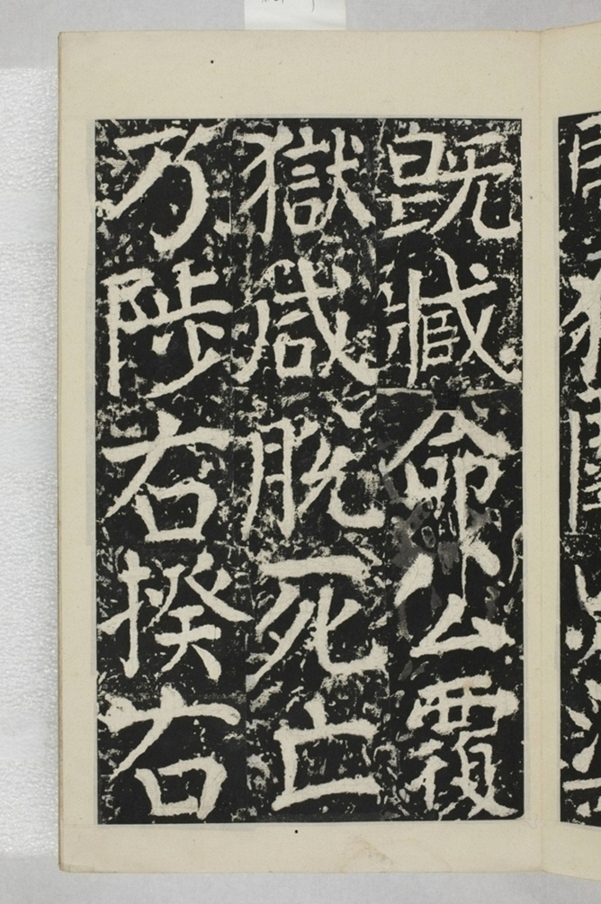 既臧命公覆
獄咸脫死亡
乃陟右揆右